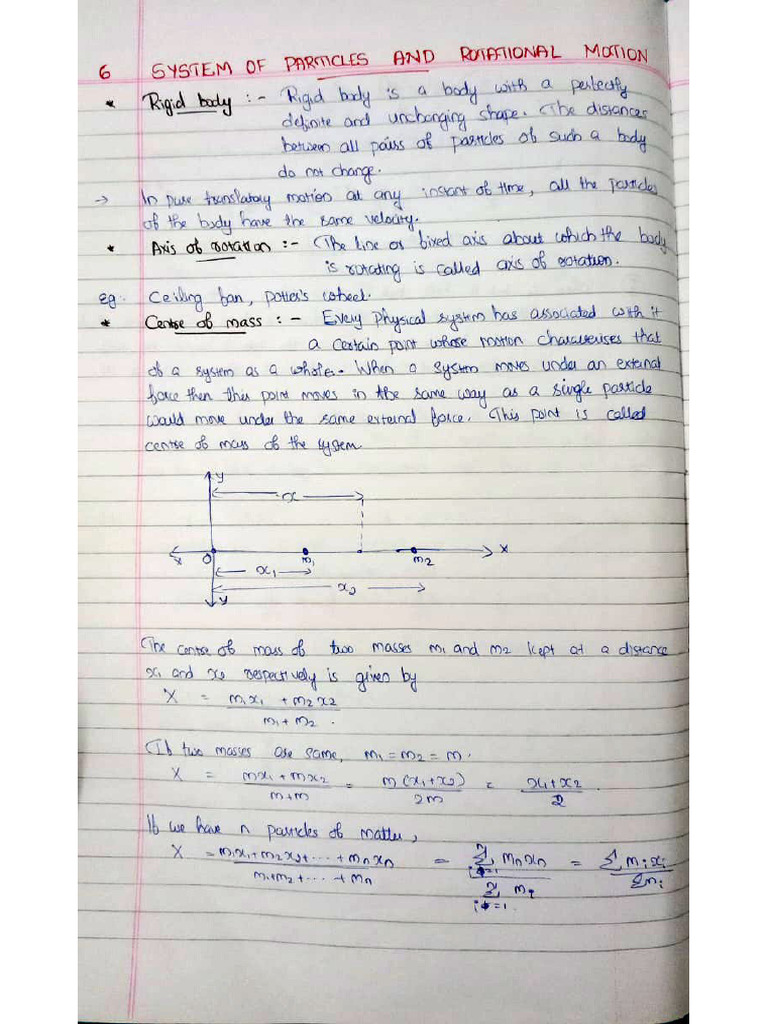 6 SYSTEM OF PARTICLES AND ROTATIONAL MOTION
* Rigid body :- Rigid body is a body with a perfectly
definite and unchanging shape. The distances
between all pairs of particles of such a body
do not change.
→ In pure translatory motion at any instant of time, all the particles
of the body have the same velocity.
* Axis of rotation :- The line or fixed axis about which the body
is rotating is called axis of rotation.
eg. Ceiling fan, potter's wheel.
* Centre of mass :- Every Physical system has associated with it
a certain point whose motion characterises that
of a system as a whole. When a system moves under an external
force then this point moves in the same way as a single particle
would move under the same external force. This point is called
centre of mass of the system.
y
x
x O m₁ m₂ x
x₁
x₂
y
The centre of mass of two masses m₁ and m₂ kept at a distance
x₁ and x₂ respectively is given by
X = m₁x₁ + m₂x₂
m₁ + m₂.
If two masses are same, m₁ = m₂ = m.
X = mx₁ + mx₂ = m(x₁+x₂) = x₁+x₂
m+m 2m 2.
If we have n particles of matter,
X = m₁x₁+m₂x₂+...+mₙxₙ = n Σ i=1 mₙxₙ = Σ mᵢxᵢ
m₁+m₂+...+mₙ n Σ i=1 mᵢ Σmᵢ